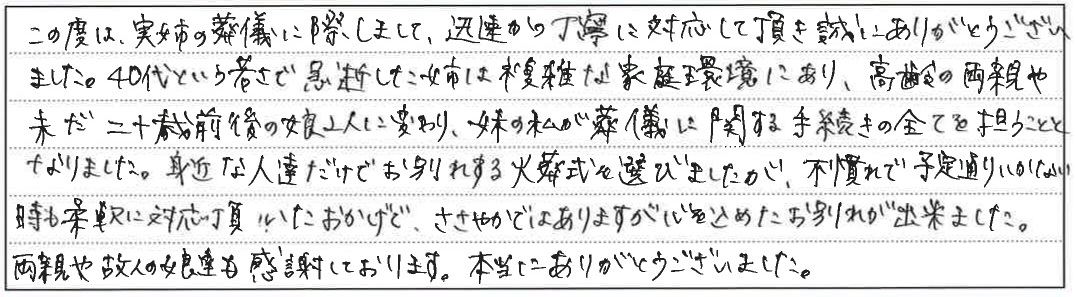 この度は、実姉の葬儀に際しまして、迅速かつ丁寧に対応して頂き誠にありがとうござい
ました。40代という若さで急逝した姉は複雑な家庭環境にあり、高齢の両親や
未だ二十歳前後の娘2人に変わり、妹の私が葬儀に関する手続きの全てを担うことと
なりました。身近な人達だけでお別れする火葬式を選びましたが、不慣れで予定通りいかない
時も柔軟に対応頂いたおかげで、ささやかではありますが心をこめたお別れが出来ました。
両親や故人の娘達も感謝しております。本当にありがとうございました。